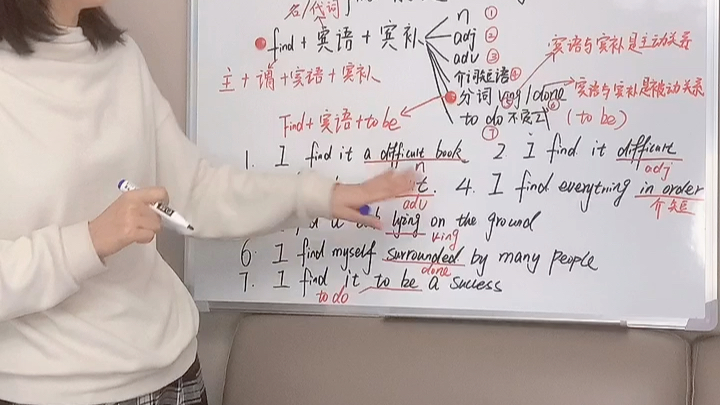 名/代词
find + 宾语 + 宾补
n ①
adj ②
adv ③
介词短语 ④
分词 ving / done
⑤ ⑥
to do 不定式 (to be)
⑦
宾语与宾补是主动关系
宾语与宾补是被动关系
主 + 谓 + 宾语 + 宾补
Find + 宾语 + to be
1. I find it a difficult book
n
2 I find it difficult
adj
adv
4. I find everything in order
介短
lying on the ground
ving
6. I find myself surrounded by many people
done
7. I find it to be a success
to do